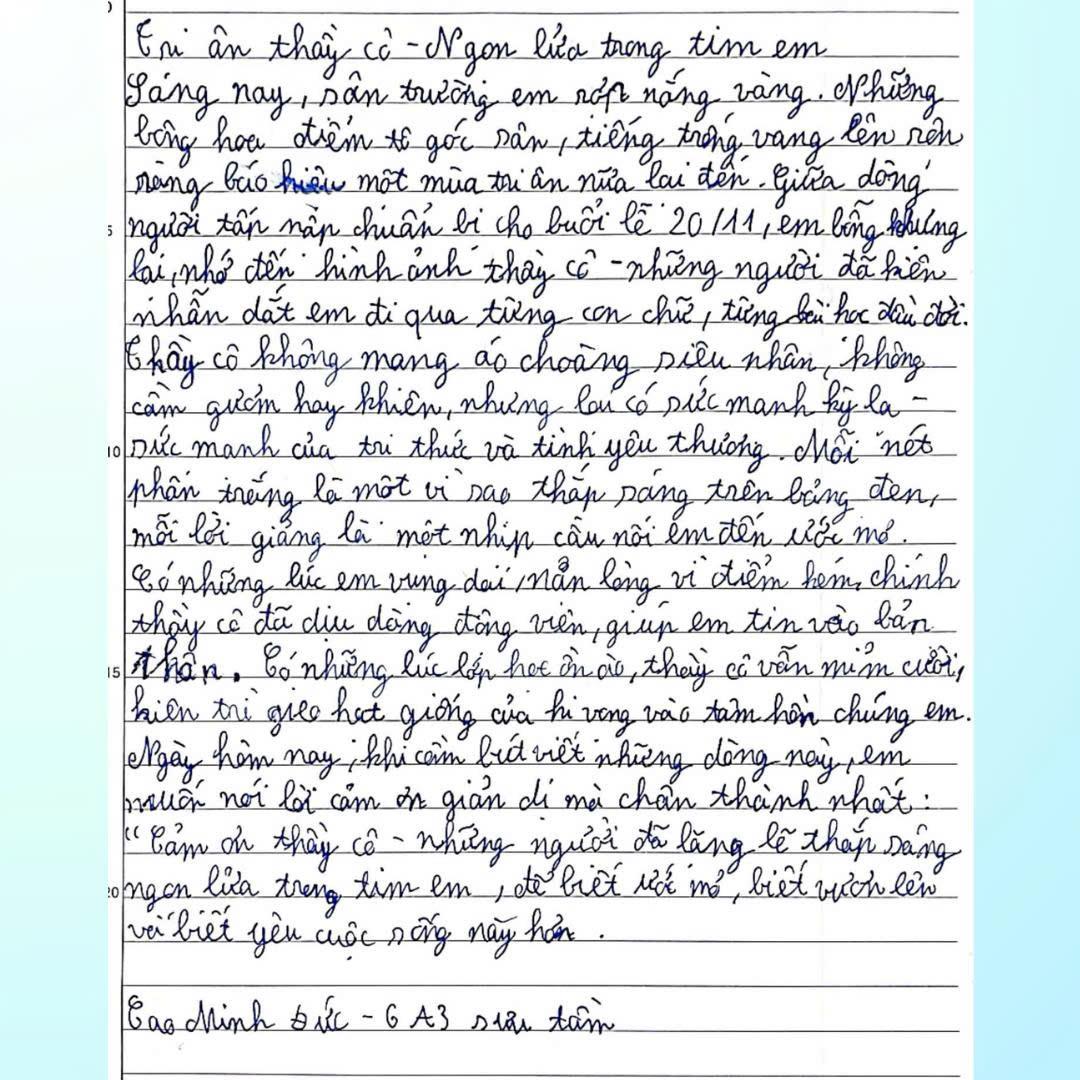 Tri ân thầy cô - Ngọn lửa trong tim em
Sáng nay, sân trường em rợp nắng vàng. Những
bông hoa điểm tô góc sân, tiếng trống vang lên rộn
ràng báo hiệu một mùa tri ân nữa lại đến. Giữa dòng
người tấp nập chuẩn bị cho buổi lễ 20/11, em bỗng khựng
lại, nhớ đến hình ảnh thầy cô - những người đã kiên
nhẫn dắt em đi qua từng con chữ, từng bài học đầu đời.
Thầy cô không mang áo choàng siêu nhân, không
cầm gươm hay khiên, nhưng lại có sức mạnh kỳ lạ -
sức mạnh của tri thức và tình yêu thương. Mỗi nét
phấn trắng là một vì sao thắp sáng trên bảng đen,
mỗi lời giảng là một nhịp cầu nối em đến ước mơ.
Có những lúc em vụng dại, nản lòng vì điểm kém, chính
thầy cô đã dịu dàng động viên, giúp em tin vào bản
thân. Có những lúc lớp học ồn ào, thầy cô vẫn mỉm cười,
kiên trì gieo hạt giống của hi vọng vào tâm hồn chúng em.
Ngày hôm nay, khi cầm bút viết những dòng này, em
muốn nói lời cảm ơn giản dị mà chân thành nhất:
"Cảm ơn thầy cô - những người đã lặng lẽ thắp sáng
ngọn lửa trong tim em, để biết ước mơ, biết vươn lên
và biết yêu cuộc sống này hơn.
Cao Minh Đức - 6A3 sưu tầm
5
10
15
20